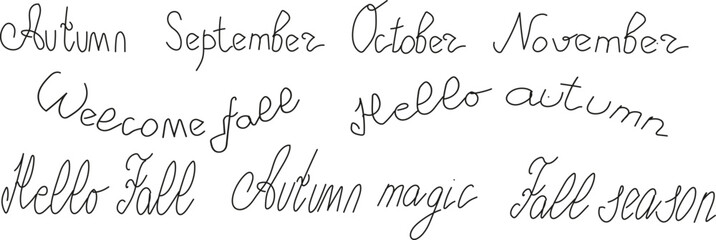 Autumn September October November
Welcome fall Hello autumn
Hello Fall Autumn magic Fall season